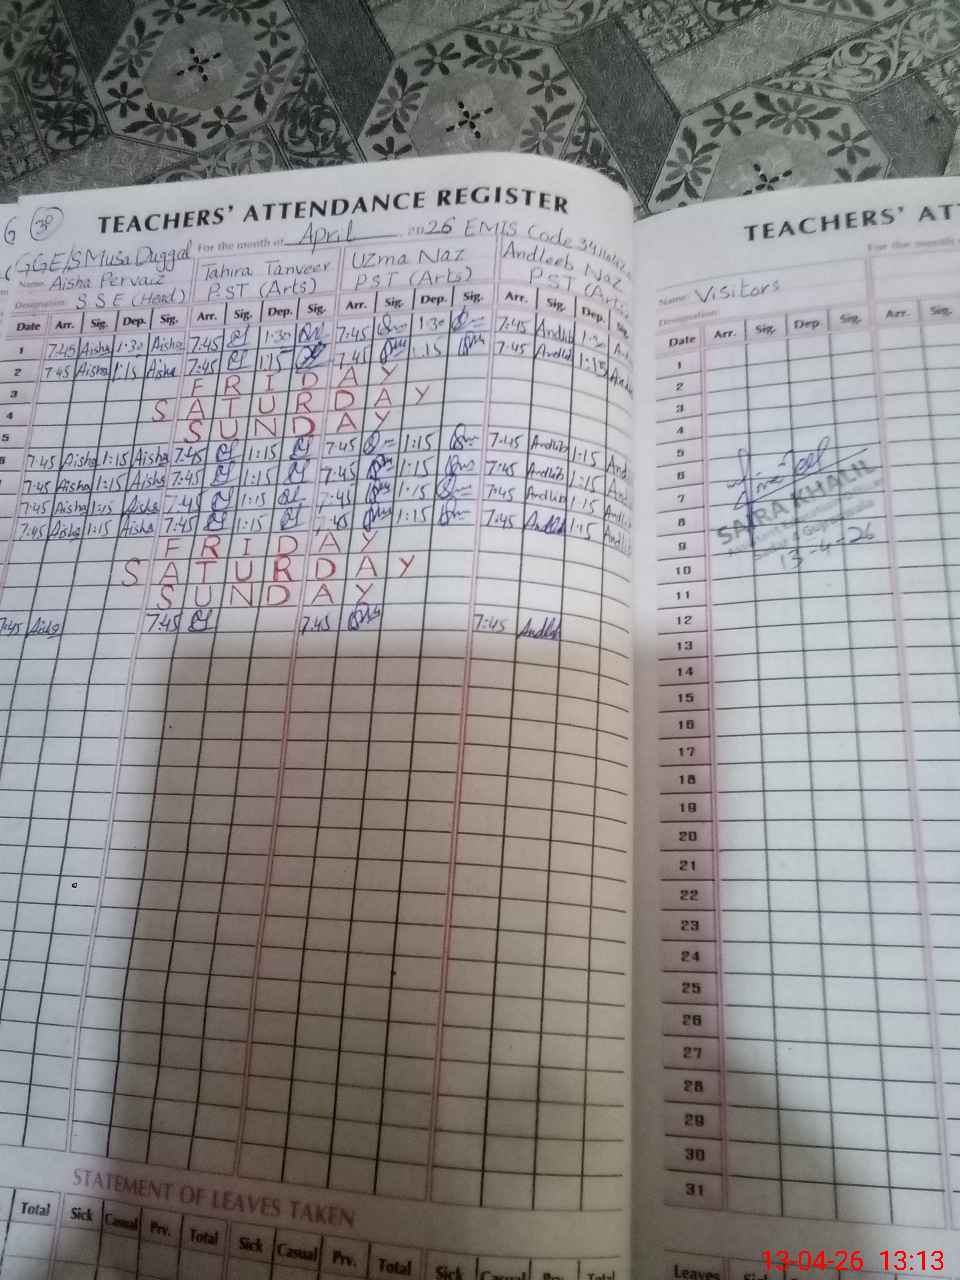 TEACHERS' ATTENDANCE REGISTER
For the month of April 2026 EMIS Code
GGE/S Musa Duggal
Name: Aisha Pervaiz Tahira Tanveer Uzma Naz Andleeb Naz
Designation: S.S.E (Head) PST (Arts) PST (Arts) PST (Arts)
Date Arr. Sig. Dep. Sig. Arr. Sig. Dep. Sig. Arr. Sig. Dep. Sig. Arr. Sig. Dep. Sig.
1 7:45 Aisha 1:30 Aisha 7:45 1:30 7:45 1:30 7:45 Andlib 1:30
2 7:45 Aisha 1:15 Aisha 7:45 1:15 7:45 1:15 7:45 Andlib 1:15
3 FRIDAY
4 SATURDAY
5 SUNDAY
7:45 Aisha 1:15 Aisha 7:45 1:15 7:45 1:15 7:45 Andlib 1:15
7:45 Aisha 1:15 Aisha 7:45 1:15 7:45 1:15 7:45 Andlib 1:15
7:45 Aisha 1:15 Aisha 7:45 1:15 7:45 1:15 7:45 Andlib 1:15
7:45 Aisha 1:15 Aisha 7:45 1:15 7:45 1:15 7:45 Andlib 1:15
FRIDAY
SATURDAY
SUNDAY
7:45 Aisha 7:45 7:45 7:45 Andlib
STATEMENT OF LEAVES TAKEN
Total Sick Casual Prv. Total Sick Casual Prv. Total Sick Casual Prv. Total
TEACHERS' AT
For the month
Name: Visitors
Designation:
Date Arr. Sig. Dep Sig. Arr. Sig.
1
2
3
4
5
6
7
8
SAIRA KHALIL
9
13-4-26
10
11
12
13
14
15
16
17
18
19
20
21
22
23
24
25
26
27
28
29
30
31
Leaves Sick Casual Prv. Total
13-04-26 13:13